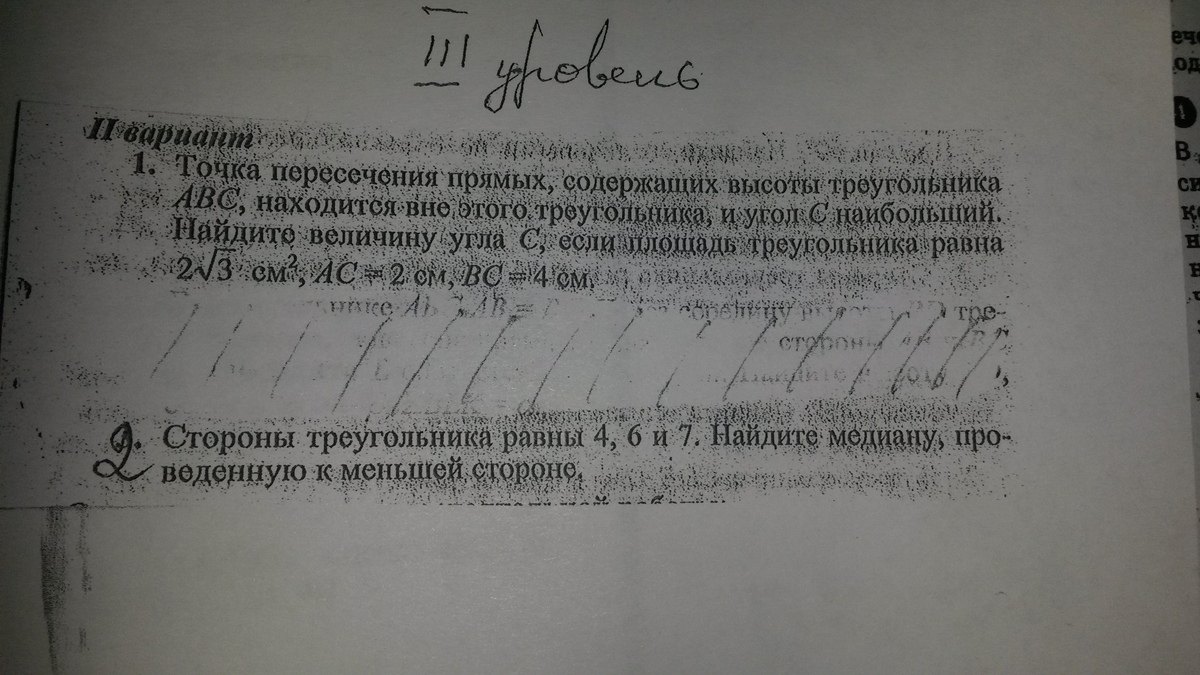 III уровень
II вариант
1. Точка пересечения прямых, содержащих высоты треугольника
ABC, находится вне этого треугольника, и угол C наибольший.
Найдите величину угла C, если площадь треугольника равна
2√3 см², AC = 2 см, BC = 4 см.
тре-
стороны
2. Стороны треугольника равны 4, 6 и 7. Найдите медиану, про-
веденную к меньшей стороне.